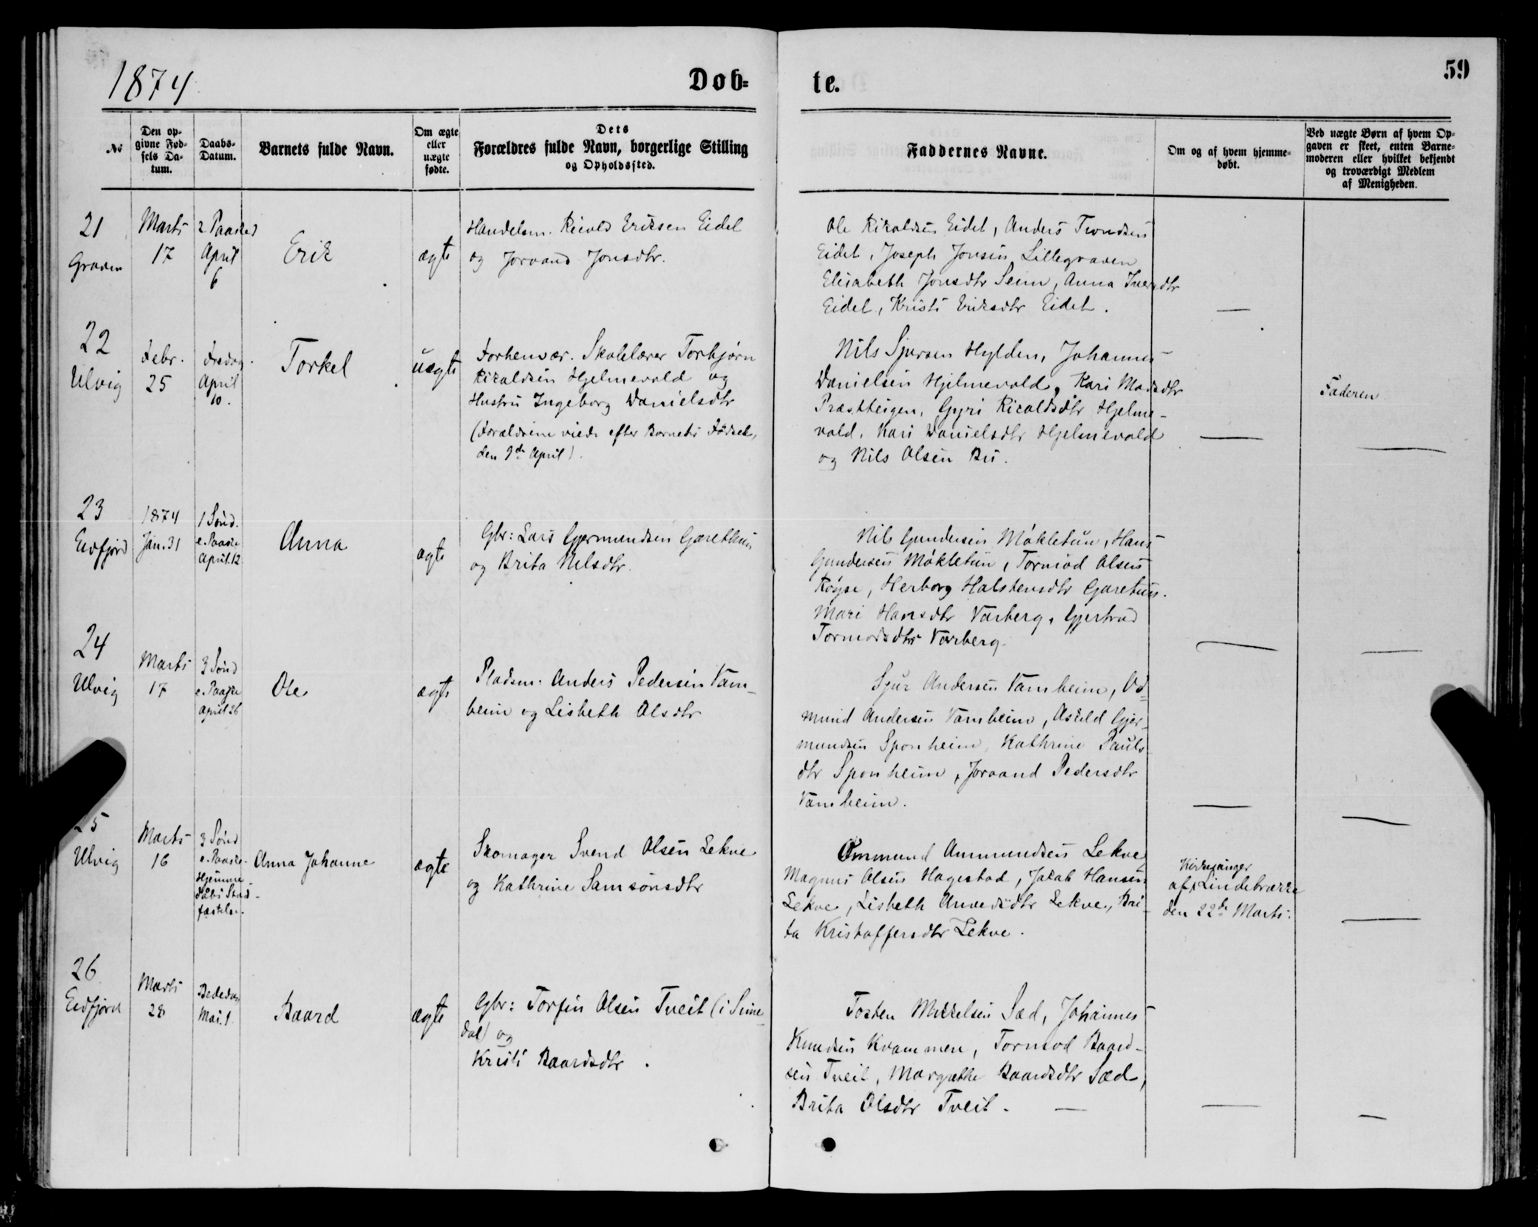 1874
Døb=
te.
59
№
Den op-
givne Fød-
sels Da-
tum.
Daabs-
Datum.
Barnets fulde Navn.
Om ægte
eller
uægte
født.
Dets
Forældres fulde Navn, borgerlige Stilling
og Opholdssted.
Faddernes Navne.
Om og af hvem hjemme-
døbt.
Ved uægte Børn af hvem Op-
gaven er skeet, enten Barne-
moderen eller hvilket bekjendt
og troværdigt Medlem
af Menigheden.
21
Graven
Marts
17
2 Paasked
April
6
Erik
ægte
Handelsm. Ricold Eriksen Eidet
og Jorand Jonsdtr.
Ole Ricoldsen Eidet, Anders Trondsen
Eidet, Joseph Jonsen Lillegraven
Elisabeth Jonsdtr Seim, Anna Iversdtr
Eidet, Kristi Eriksdtr Eidet.
22
Ulvig
Febr.
25
April
10.
Torkel
uægte
Forhenvær. Skolelærer Torbjørn
Ricoldsen Hjelmevold og
Hustru Ingeborg Danielsdtr
(Forældrene viede efter Barnets Fødsel,
den 9de April).
Nils Sjursen Hylden, Johannes
Danielsen Hjelmevold, Kari Madsdtr
Præstteigen, Gyri Ricoldsdtr Hjelme-
vold, Kari Danielsdtr Hjelmevold
og Nils Olsen Bu.
Faderen
23
Eidfjord
1874
Jan. 31
1 Sønd.
e. Paaske
April 12
Anna
ægte
Gbr: Lars Gjermundsen Garethun
og Brita Nilsdtr.
Nils Gundersen Møkletun, Hans
Gundersen Møkletun, Tormod Olsen
Røyse, Herborg Halstensdtr Garetun.
Mari Hansdtr Varberg, Gjertrud
Tormodsdtr Varberg.
24
Ulvig
Marts
17
3 Sønd
e. Paaske
April 26
Ole
ægte
Pladsm. Anders Pedersen Vam-
beim og Lisbeth Olsdtr
Sjur Andersen Vambeim, Od-
mund Andersen Vambeim, Askild Gjer-
mundsen Sponheim, Kathrine Pauls-
dtr Sponheim, Jorand Pedersdtr
Vambeim.
25
Ulvig
Marts
16
3 Sønd
e. Paaske
Hjemme-
Daabs Stad-
fæstelse.
Anna Johanne
ægte
Skomager Svend Olsen Lekve
og Kathrine Samsonsdtr
Ommund Ammundsen Lekve
Magnus Olsen Hagestad, Jakob Hansen
Lekve, Lisbeth Lekve, Bri-
ta Kristoffersdtr Lekve.
Kirkesanger
af Lindebrække
den 22de Marts.
26
Eidfjord
Marts
28
Bededag
Mai 1.
Baard
ægte
Gbr: Torfin Olsen Tveit (i Sime-
dal) og
Kristi Baardsdtr.
Tosten Mikkelsen Sæd, Johannes
Knudsen Kvammen, Tormod Baard-
sen Tveit, Margrethe Baardsdtr Sæd,
Brita Olsdtr Tveit.